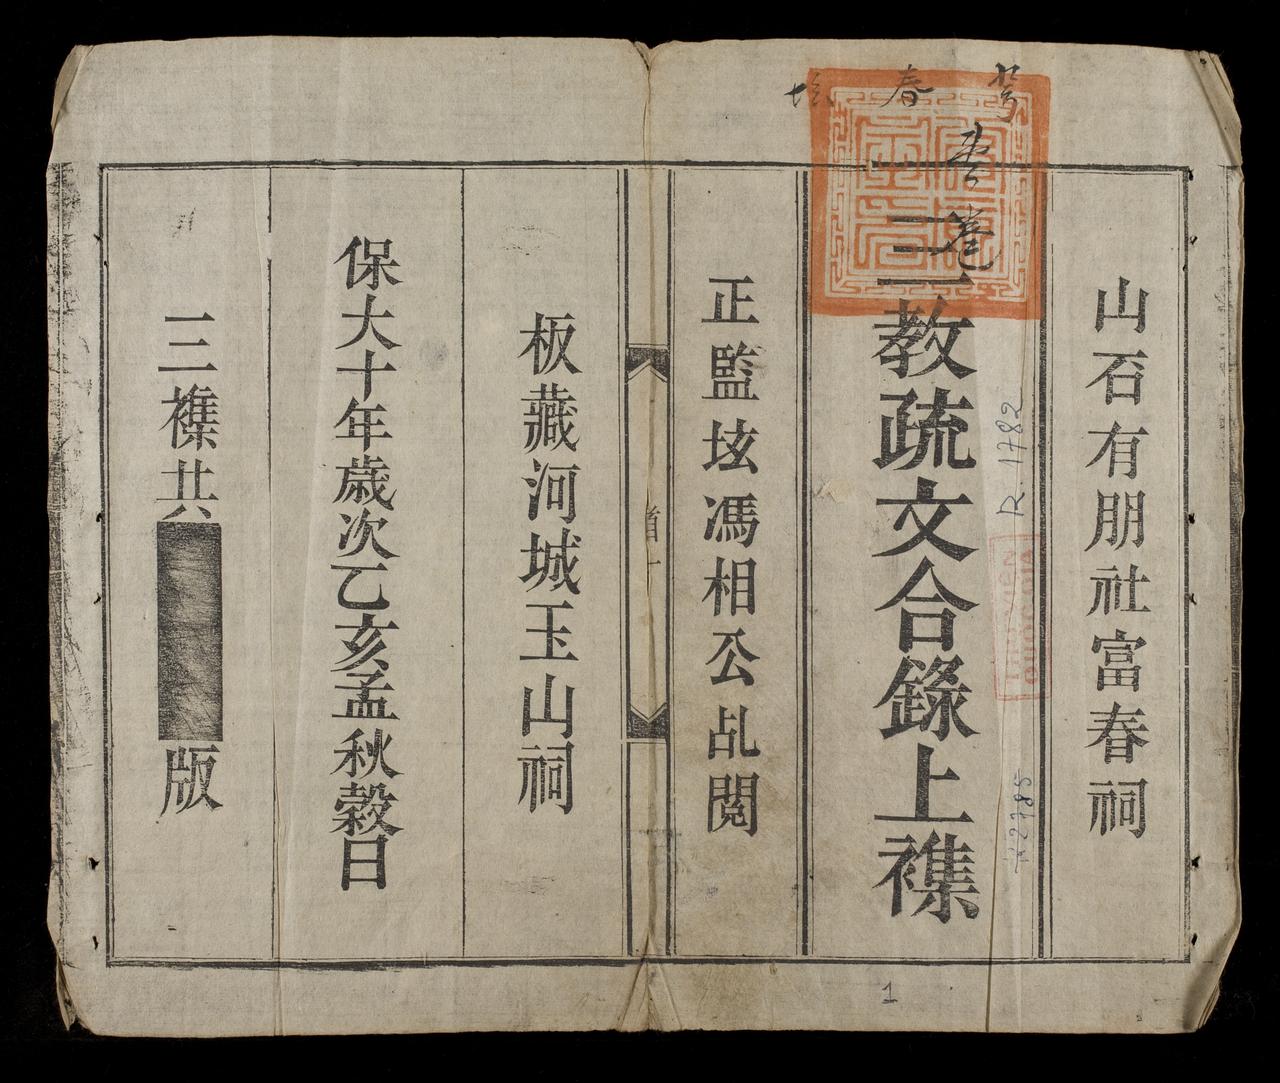 春
卷
山石有朋社富春祠
三教疏文合錄上襍
R.1782
正監玹馮相公乩閱
首 一
板藏河城玉山祠
保大十年歲次乙亥孟秋穀日
三襍共
版
1